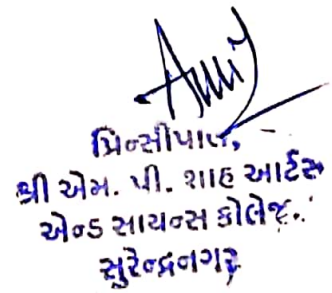 Amit
પ્રિન્સીપાલ,
શ્રી એમ. પી. શાહ આર્ટસ
એન્ડ સાયન્સ કોલેજ.
સુરેન્દ્રનગર